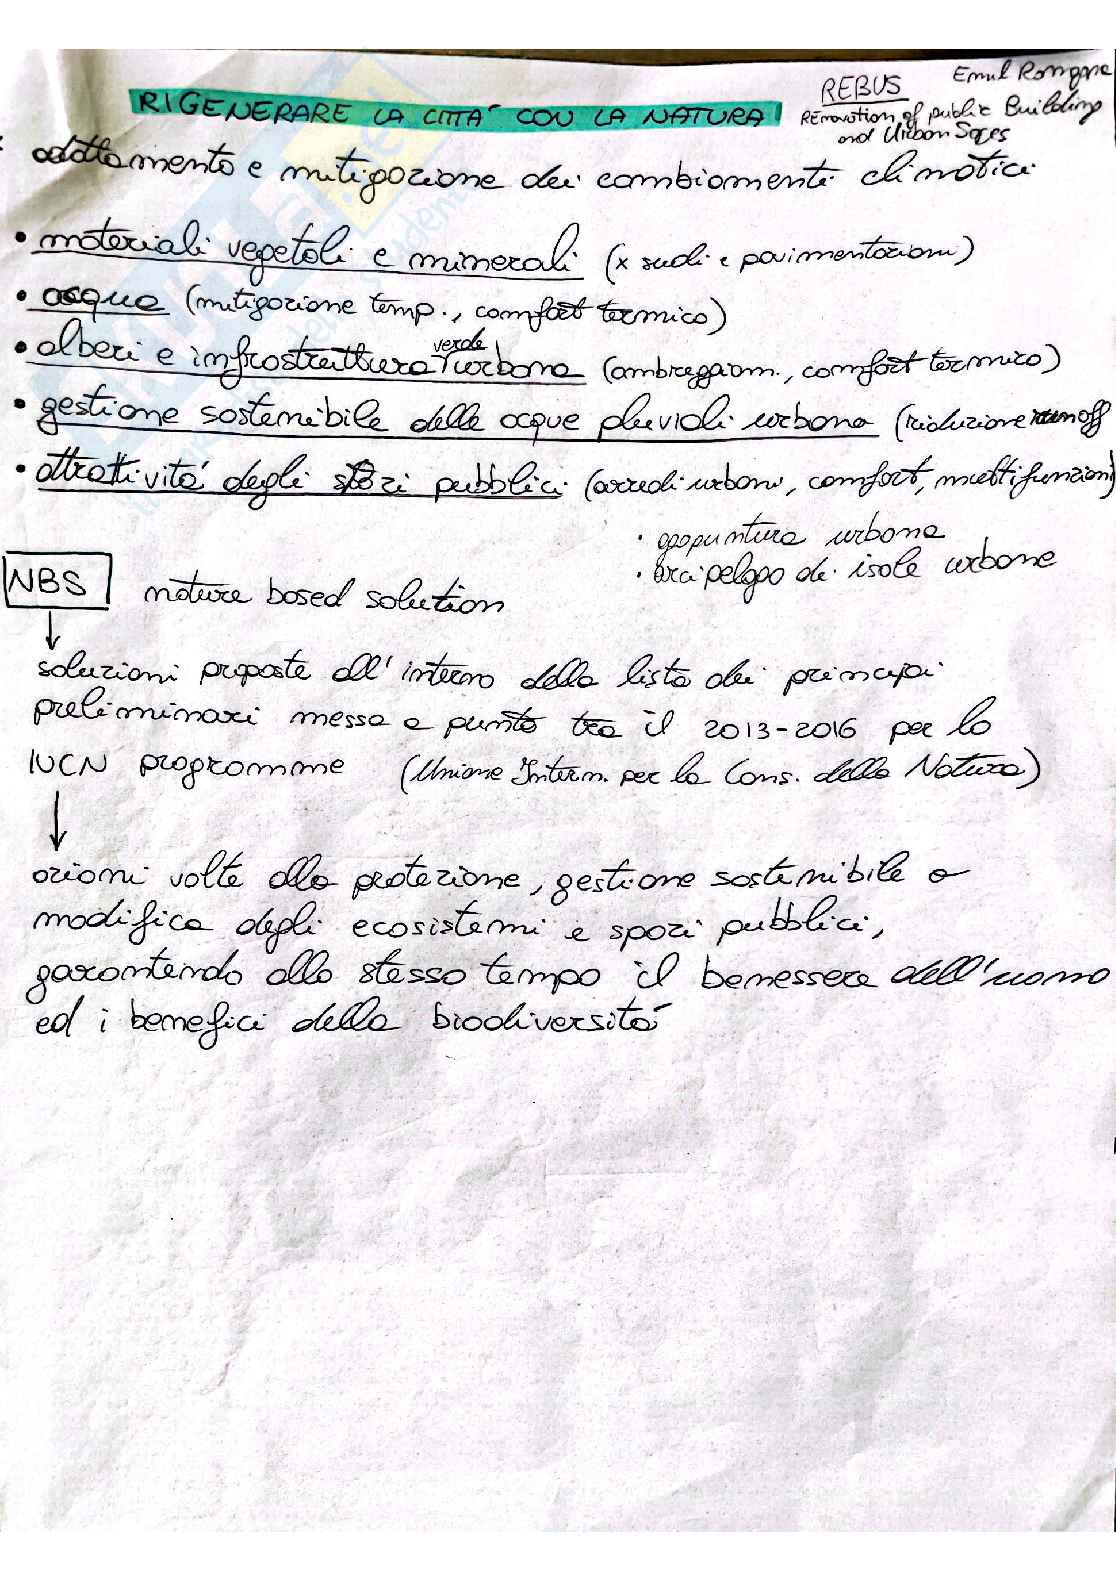 RIGENERARE LA CITTÀ CON LA NATURA
REBUS Emil Romagna
REnovation of public Building
and Urban Spces
adattamento e mitigazione dei cambiamenti climatici
• materiali vegetali e minerali (x suoli e pavimentazioni)
• acqua (mitigazione temp., comfort termico)
• alberi e infrastruttura verde urbana (ombreggiam., comfort termico)
• gestione sostenibile delle acque pluviali urbane (riduzione runoff
• attrattività degli spazi pubblici (arredi urbani, comfort, multifunzioni)
• agopuntura urbana
• arcipelago di isole urbane
NBS nature based solution
soluzioni proposte all'interno della lista dei principi
preliminari messa a punto tra il 2013-2016 per lo
IUCN programme (Unione Intern. per la Cons. della Natura)
azioni volte alla protezione, gestione sostenibile o
modifica degli ecosistemi e spazi pubblici,
garantendo allo stesso tempo il benessere dell'uomo
ed i benefici della biodiversità